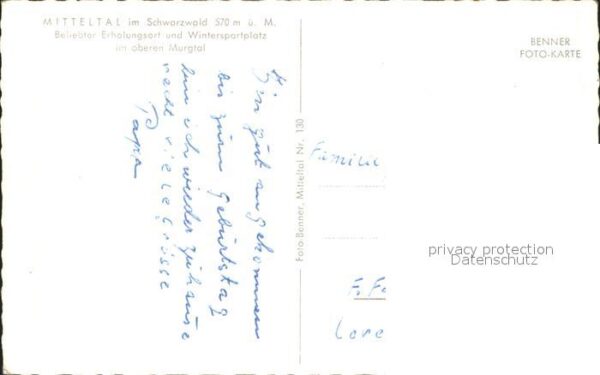 MITTELTAL im Schwarzwald 570 m ü. M.
Beliebter Erholungsort und Wintersportplatz
im oberen Murgtal
BENNER
FOTO-KARTE
Bin gut angekommen
bis zum Geburtstag
bin ich wieder zuhause
recht viele Grüsse
Papa
Foto-Benner, Mitteltal Nr. 130
Familie
privacy protection
Datenschutz
F. Fa
Lore